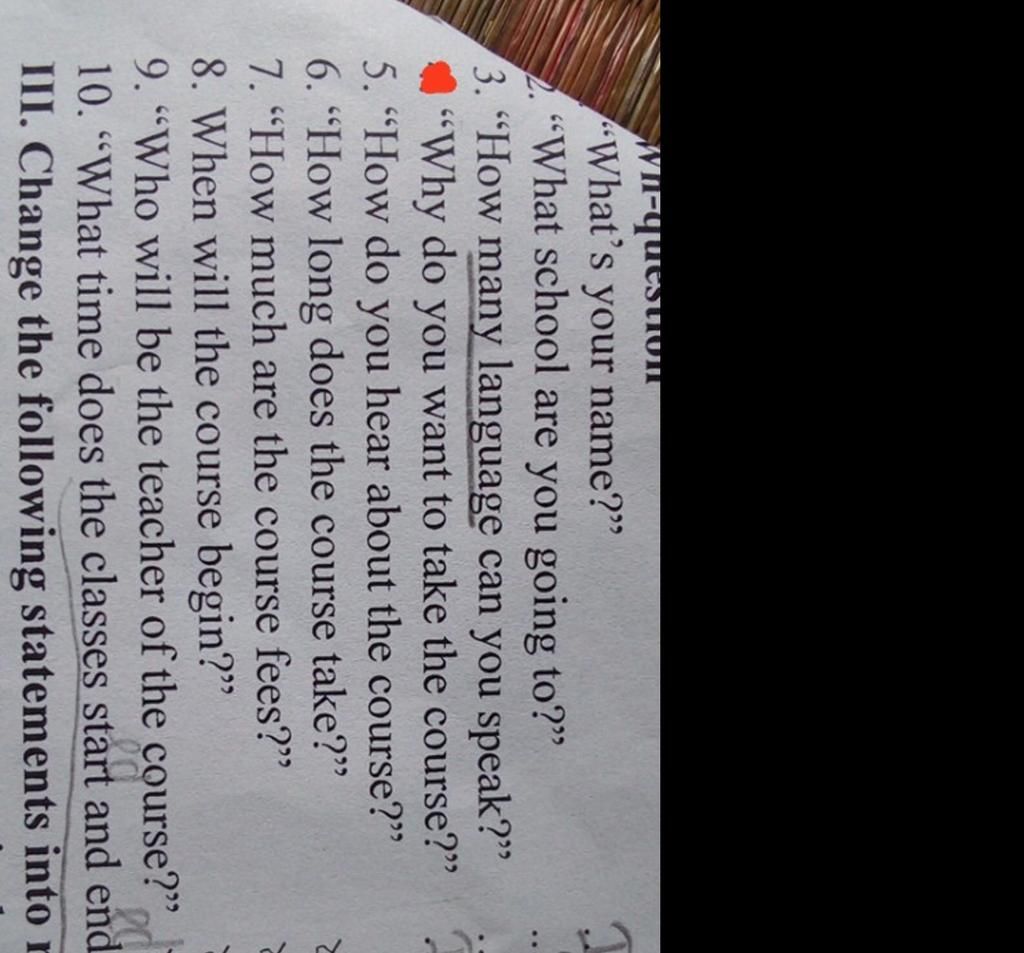 Wh-question
"What's your name?"
2. "What school are you going to?"
3. "How many language can you speak?"
"Why do you want to take the course?"
5. "How do you hear about the course?"
6. "How long does the course take?"
7. "How much are the course fees?"
8. When will the course begin?"
9. "Who will be the teacher of the course?"
10. "What time does the classes start and end
III. Change the following statements into